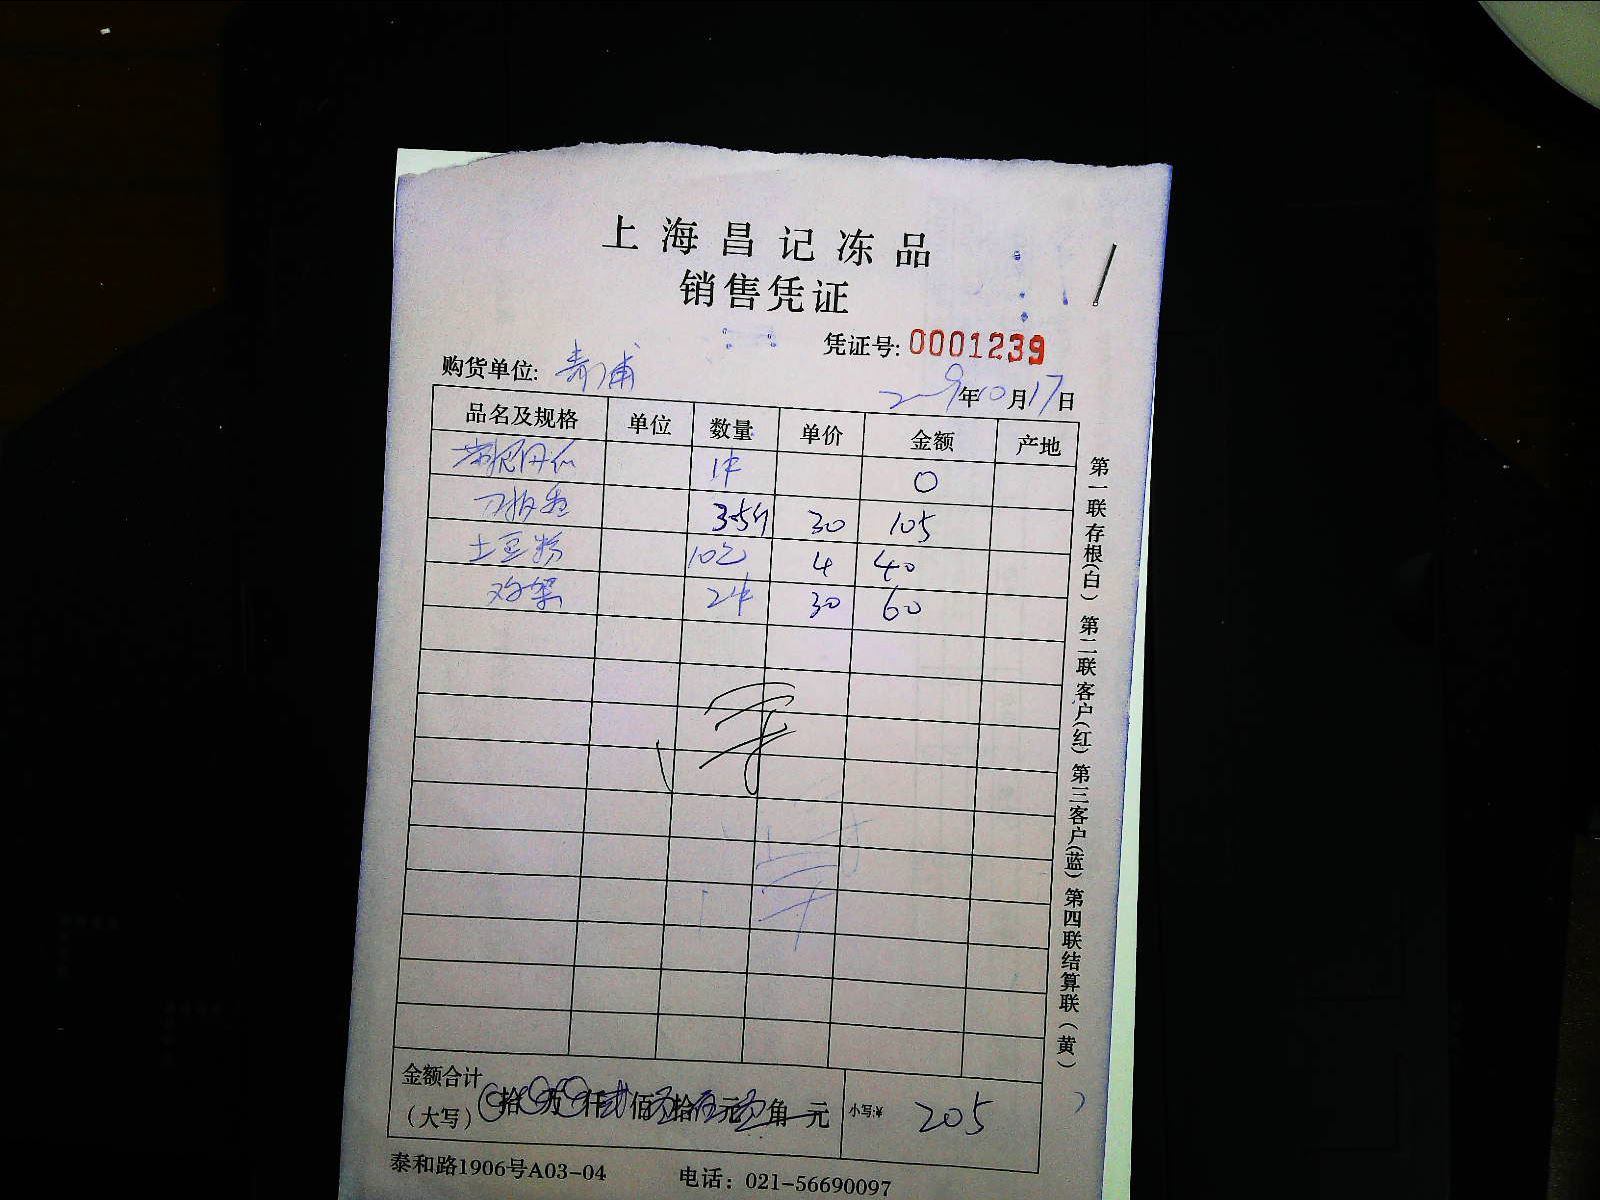 上海昌记冻品
销售凭证
凭证号: 0001239
购货单位: 青浦
年10月17日
品名及规格 单位 数量 单价 金额 产地
1件 0
3.5斤 30 105
土豆粉 10包 4 40
鸡架 2件 30 60
金额合计
(大写) 拾 万 仟贰佰零拾伍元零角 元 小写:¥ 205
泰和路1906号A03-04 电话：021-56690097
第一联存根(白) 第二联客户(红) 第三客户(蓝) 第四联结算联(黄)